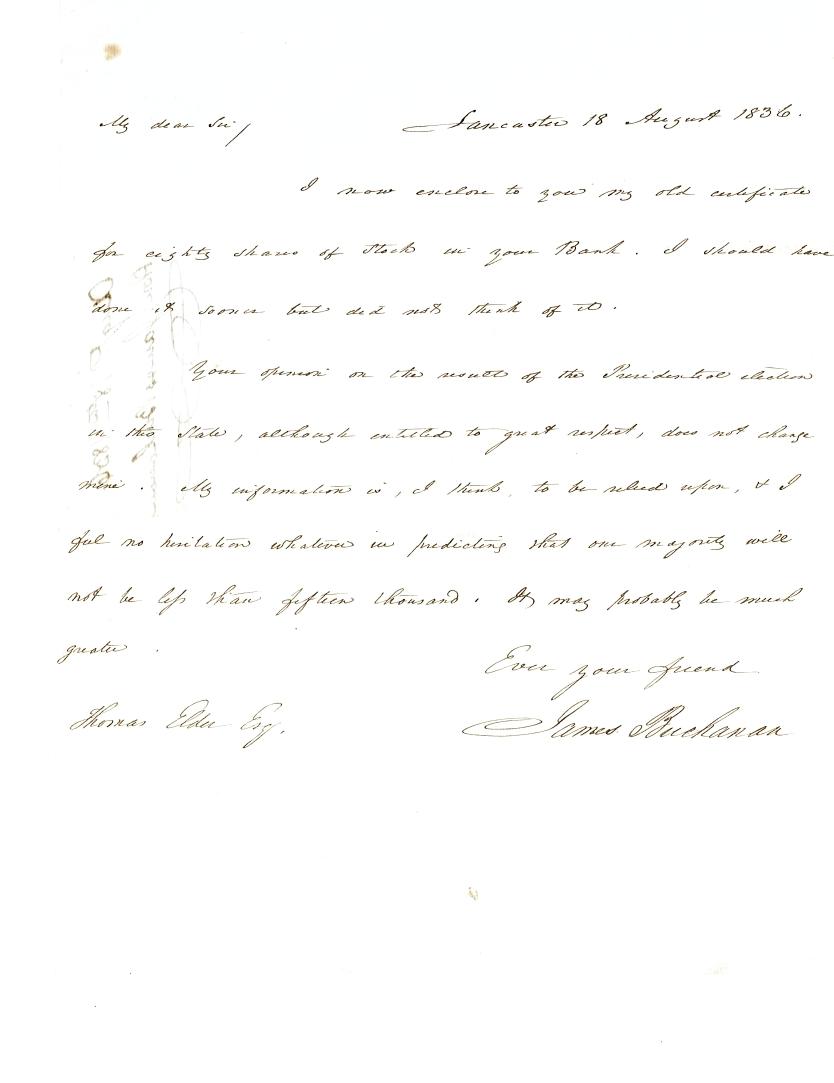 My dear Sir/ Lancaster 18 August 1836.
I now enclose to you my old certificate
for eighty shares of Stock in your Bank. I should have
done it sooner but did not think of it.
Your opinion on the result of the Presidential election
in this State, although entitled to great respect, does not change
mine. My information is, I think, to be relied upon, & I
feel no hesitation whatever in predicting that our majority will
not be less than fifteen thousand. It may probably be much
greater.
Ever your friend
James Buchanan
Thomas Elder Esq.